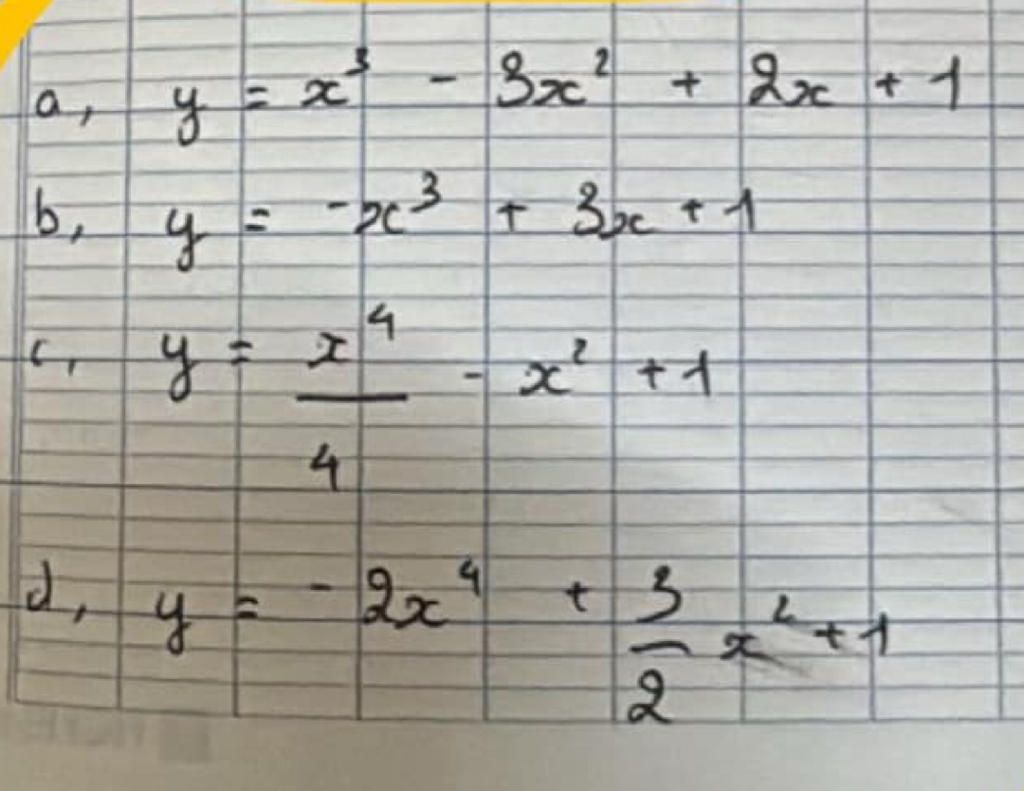 a, y = x³ - 3x² + 2x + 1
b, y = -x³ + 3x + 1
c, y = x⁴/4 - x² + 1
d, y = -2x⁴ + 3/2 x² + 1